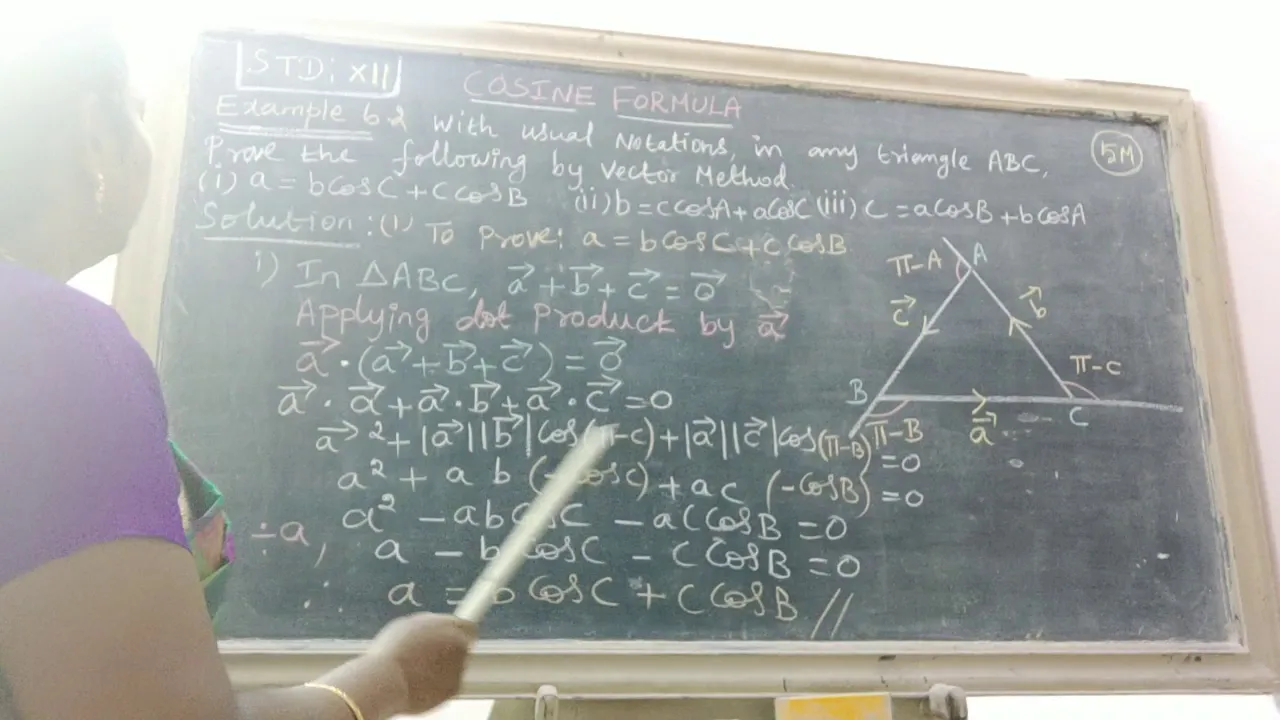 STD: XII
COSINE FORMULA
5M
Example 6.2 With usual Notations, in any triangle ABC,
Prove the following by Vector Method.
(i) a = b cos C + c cos B (ii) b = c cos A + a cos C (iii) c = a cos B + b cos A
Solution: (i) To Prove: a = b cos C + c cos B
i) In ΔABC, a⃗ + b⃗ + c⃗ = 0⃗
Applying dot Product by a⃗
a⃗ · (a⃗ + b⃗ + c⃗) = 0⃗
a⃗ · a⃗ + a⃗ · b⃗ + a⃗ · c⃗ = 0
a⃗² + |a⃗||b⃗| cos(π-C) + |a⃗||c⃗| cos(π-B) = 0
a² + a b (-cos C) + ac (-cos B) = 0
a² - ab cos C - ac cos B = 0
÷a, a - b cos C - c cos B = 0
∴ a = b cos C + c cos B //
π-A A
c⃗ b⃗
π-C
B
π-B a⃗ C